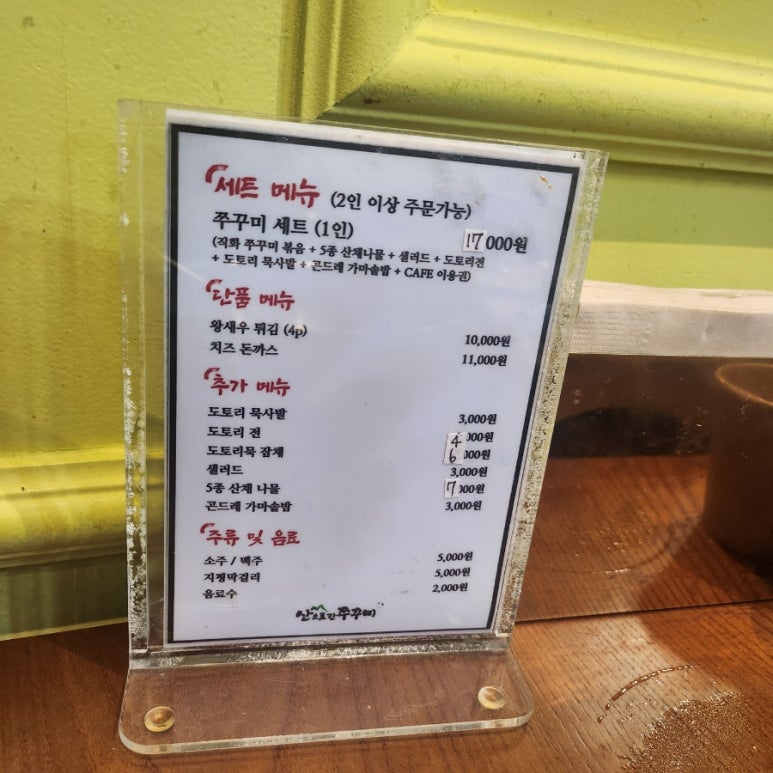 세트 메뉴 (2인 이상 주문가능)
쭈꾸미 세트 (1인) 17000원
(직화 쭈꾸미 볶음 + 5종 산채나물 + 샐러드 + 도토리전
+ 도토리 묵사발 + 곤드레 가마솥밥 + CAFE 이용권)
단품 메뉴
왕새우 튀김 (4p) 10,000원
치즈 돈까스 11,000원
추가 메뉴
도토리 묵사발 3,000원
도토리 전 4000원
도토리묵 잡채 6000원
샐러드 3,000원
5종 산채 나물 7000원
곤드레 가마솥밥 3,000원
주류 및 음료
소주 / 맥주 5,000원
지평막걸리 5,000원
음료수 2,000원
산으로간쭈꾸미